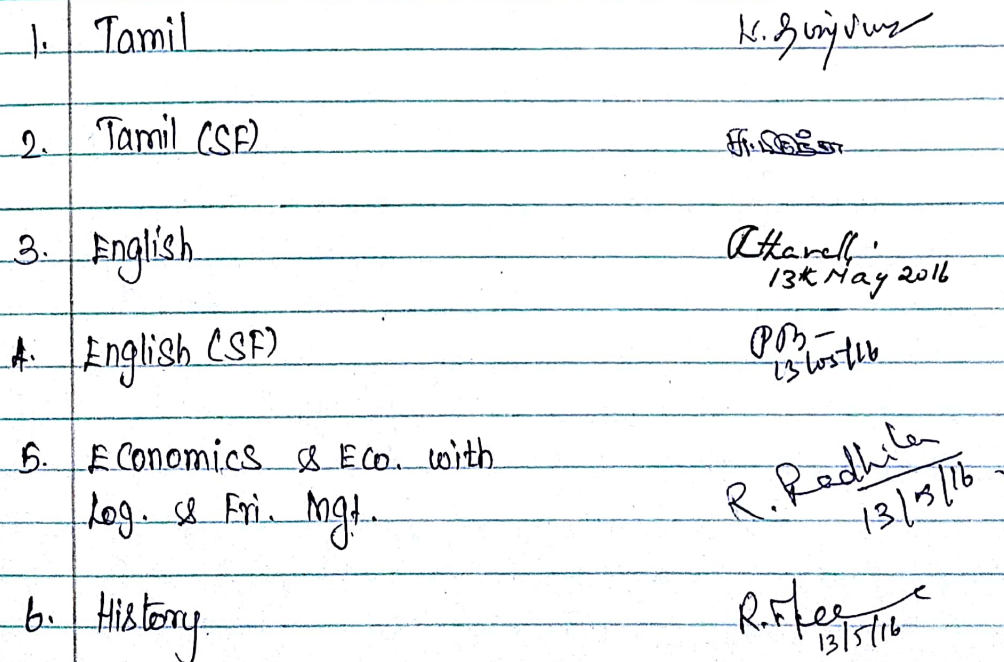 1. Tamil
2. Tamil (SF)
3. English
13th May 2016
4. English (SF)
13/05/16
5. Economics & Eco. with
Log. & Fri. Mgt.
R. Radhika
13/5/16
6. History
13/5/16